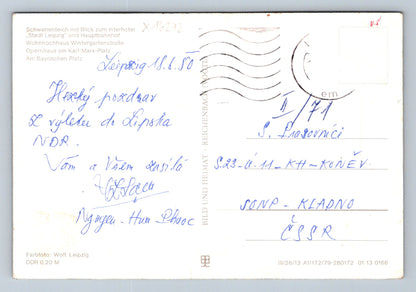 Schwanenteich mit Blick zum Interhotel
"Stadt Leipzig" und Hauptbahnhof
Wohnhochhaus Wintergartenstraße
Opernhaus am Karl-Marx-Platz
Am Bayrischen Platz
Leipzig 18.6.80
Hezký pozdrav
z výletu do Lipska
NDR.
Vám a Všem zasílá
Nguyen - Huu Phuoc
Farbfoto: Weft, Leipzig
DDR 0,20 M
BILD UND HEIMAT REICHENBACH
II/71
S. Pracovníci
S.23-Ú.11-KH-KONĚV
SONP-KLADNO
ČSSR
III/26/13 A1/172/79-280172 01 13 0166